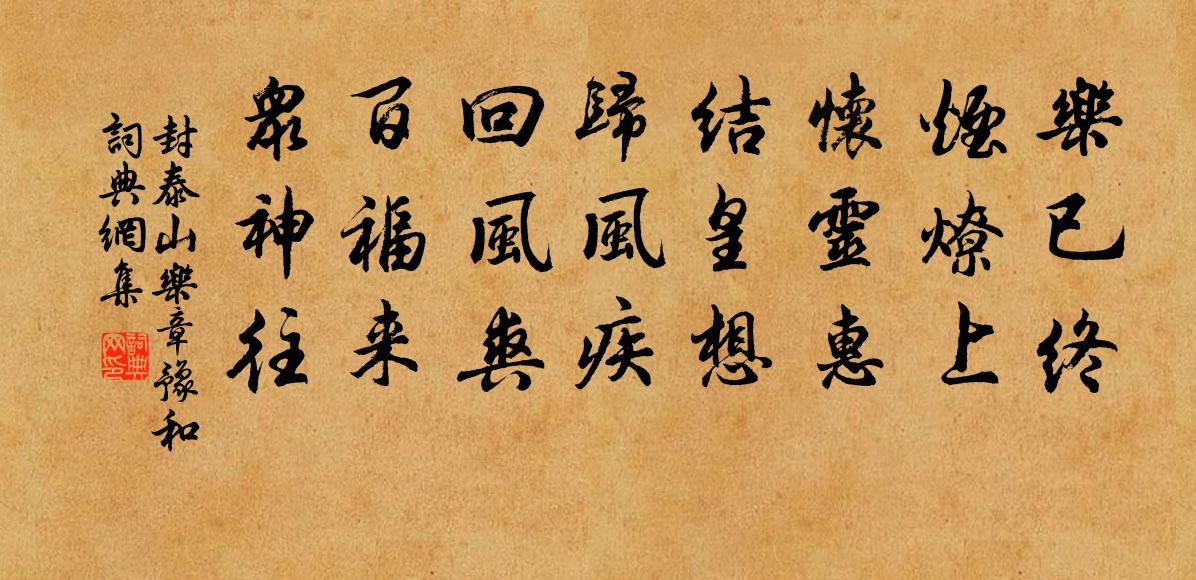 樂已終
煙燎上
懷靈惠
結皇想
歸風疾
回風爽
百福来
眾神往
封泰山樂章豫和
詞典網集
詞典网印